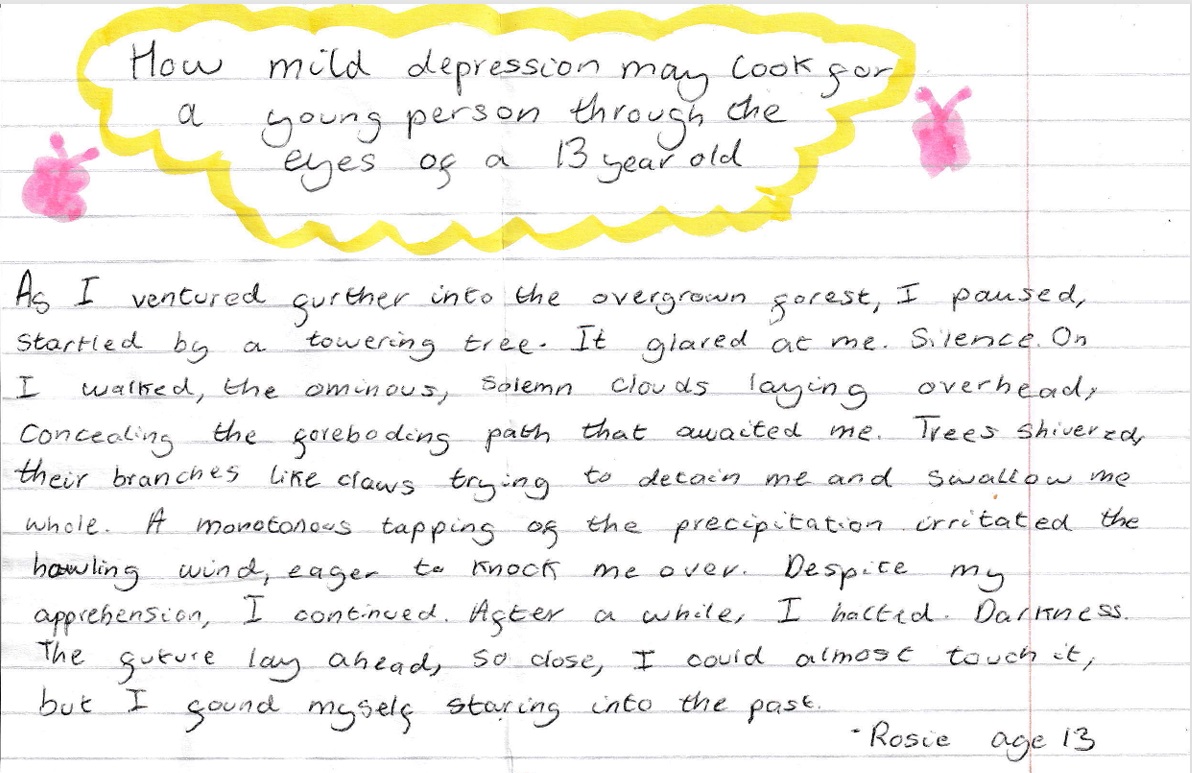 How mild depression may look for
a young person through the
eyes of a 13 year old
As I ventured further into the overgrown forest, I paused,
startled by a towering tree. It glared at me. Silence. On
I walked, the ominous, solemn clouds laying overhead,
concealing the foreboding path that awaited me. Trees shivered,
their branches like claws trying to detain me and swallow me
whole. A monotonous tapping of the precipitation irritated the
howling wind, eager to knock me over. Despite my
apprehension, I continued. After a while, I halted. Darkness.
The future lay ahead, so close, I could almost touch it,
but I found myself staring into the past.
- Rosie age 13